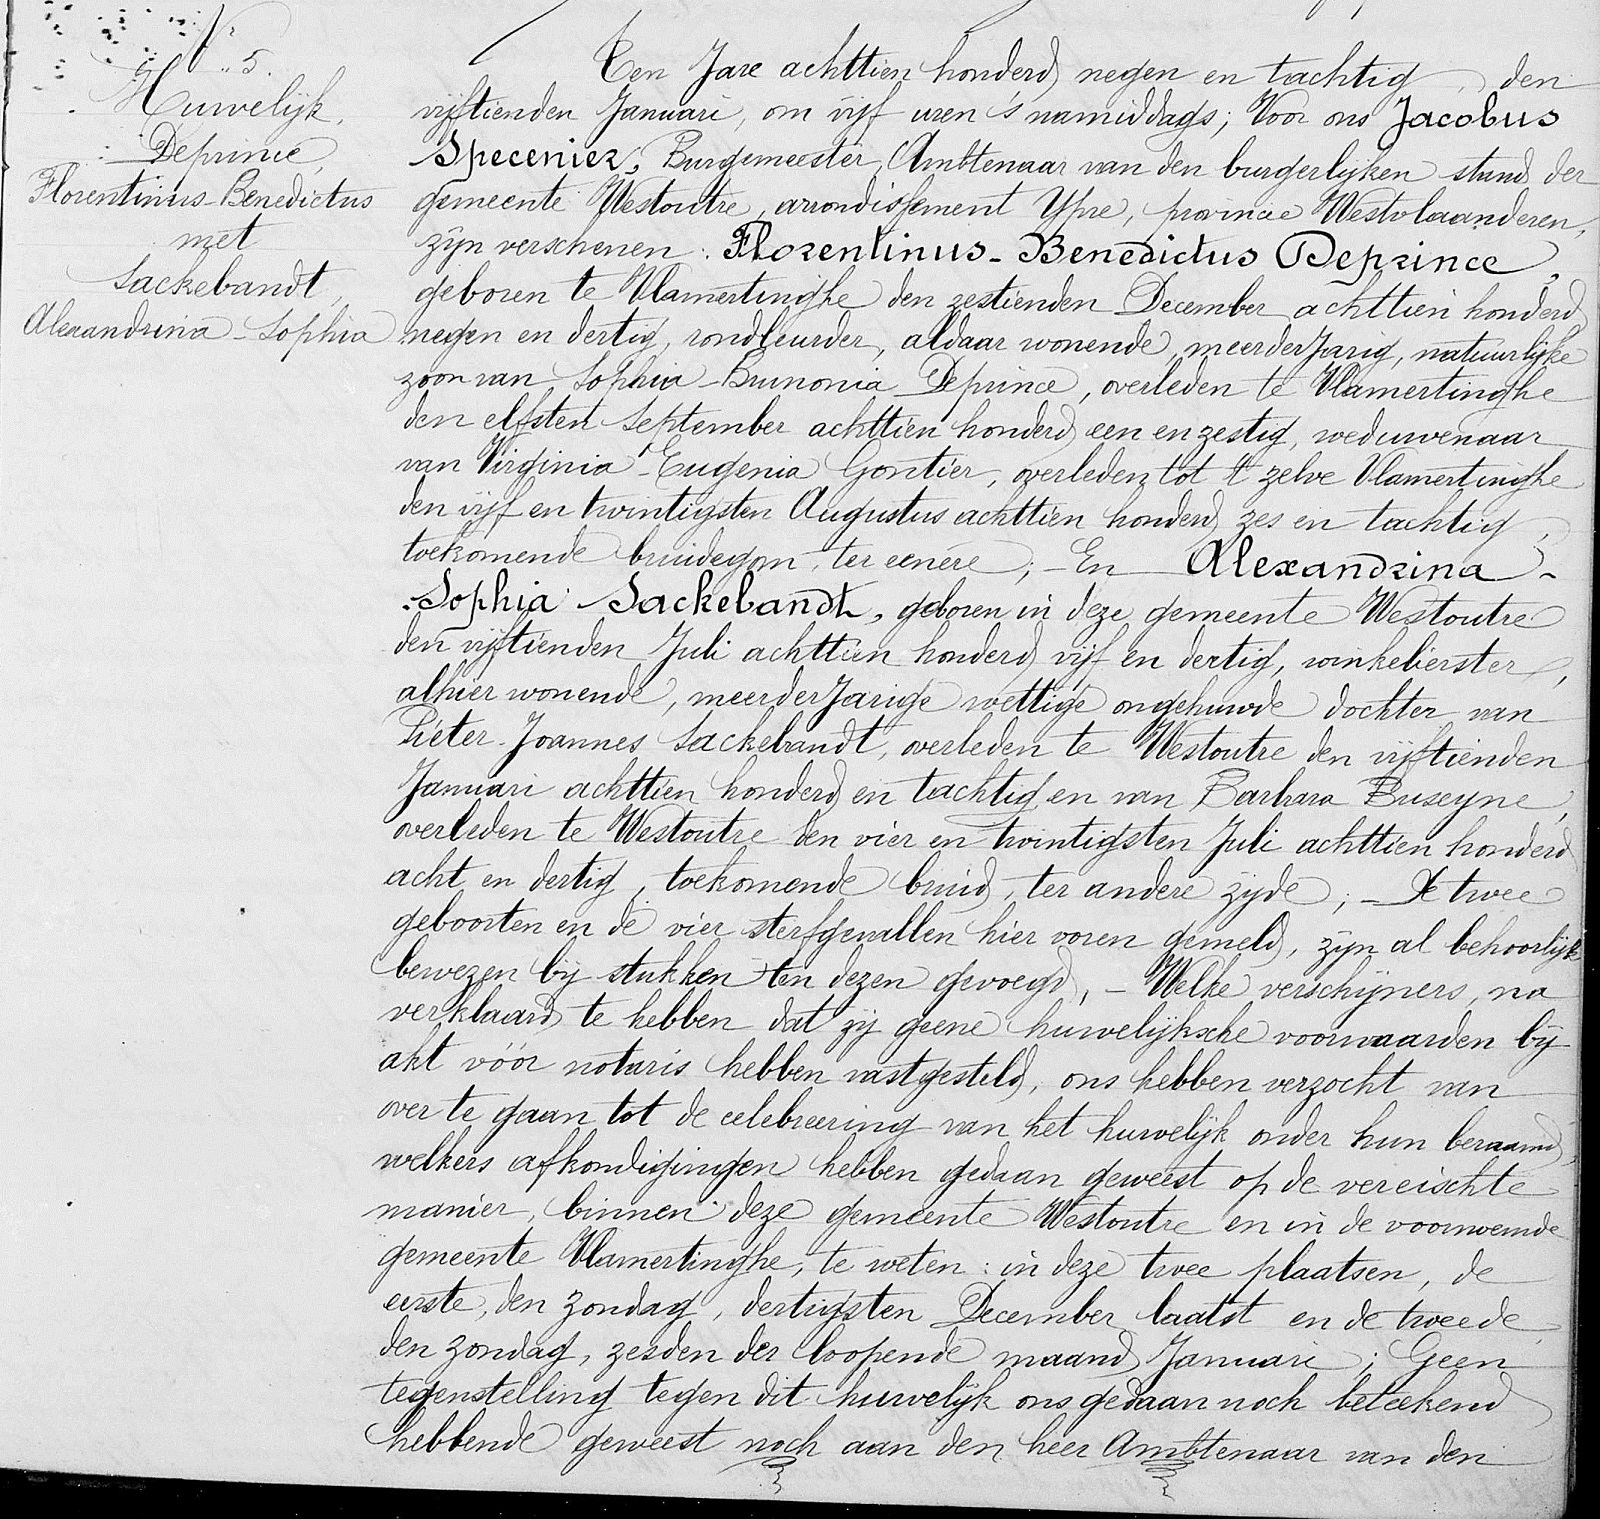 N.r 5.
Huwelijk,
Deprince,
Florentinus-Benedictus
met
Sackebandt,
Alexandrina-Sophia
Ten Jare achttien honderd negen en tachtig, den
vijftienden Januari, om vijf uren 's namiddags; Voor ons Jacobus
Specenier, Burgemeester, Ambtenaar van den burgerlijken stand der
gemeente Westoutre, arrondissement Ypre, provincie Westvlaanderen,
zijn verschenen: Florentinus-Benedictus Deprince,
geboren te Vlamertinghe den zestienden December achttien honderd
negen en dertig, rondleurder, aldaar wonende, meerderjarig, natuurlijke
zoon van Sophia-Brunonia Deprince, overleden te Vlamertinghe
den elfsten September achttien honderd een en zestig, weduwenaar
van Virginia-Eugenia Gontier, overleden tot 't zelve Vlamertinghe
den vijf en twintigsten Augustus achttien honderd zes en tachtig,
toekomende bruidegom, ter eenere; - En Alexandrina-
Sophia Sackebandt, geboren in deze gemeente Westoutre
den vijftienden Juli achttien honderd vijf en dertig, winkelierster,
alhier wonende, meerderjarige wettige ongehuwde dochter van
Pieter-Joannes Sackebandt, overleden te Westoutre den vijftienden
Januari achttien honderd en tachtig en van Barbara Buseyne,
overleden te Westoutre den vier en twintigsten Juli achttien honderd
acht en dertig, toekomende bruid, ter andere zijde; - De twee
geboorten en de vier sterfgevallen hier voren gemeld, zijn al behoorlijk
bewezen bij stukken ten dezen gevoegd, - Welke verschijners, na
verklaard te hebben dat zij geene huwelijksche voorwaarden bij
akt vóór notaris hebben vastgesteld, ons hebben verzocht van
over te gaan tot de celebreering van het huwelijk onder hun beraamd,
welkers afkondigingen hebben gedaan geweest op de vereischte
manier, binnen deze gemeente Westoutre en in de voornoemde
gemeente Vlamertinghe, te weten: in deze twee plaatsen, de
eerste, den zondag, dertigsten December laatst en de tweede
den zondag, zesden der loopende maand Januari; Geen
tegenstelling tegen dit huwelijk ons gedaan noch beteekend
hebbende geweest noch aan den heer Ambtenaar van den